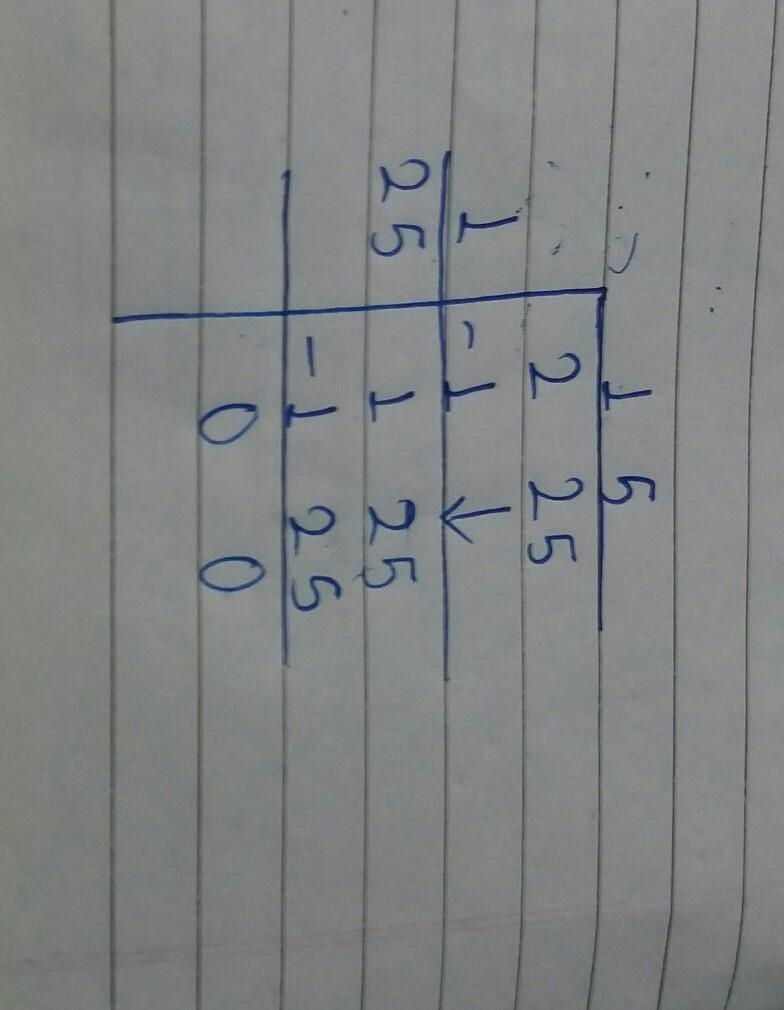 1 5
2 25
1 -1 ↓
25 1 25
-1 25
0 0